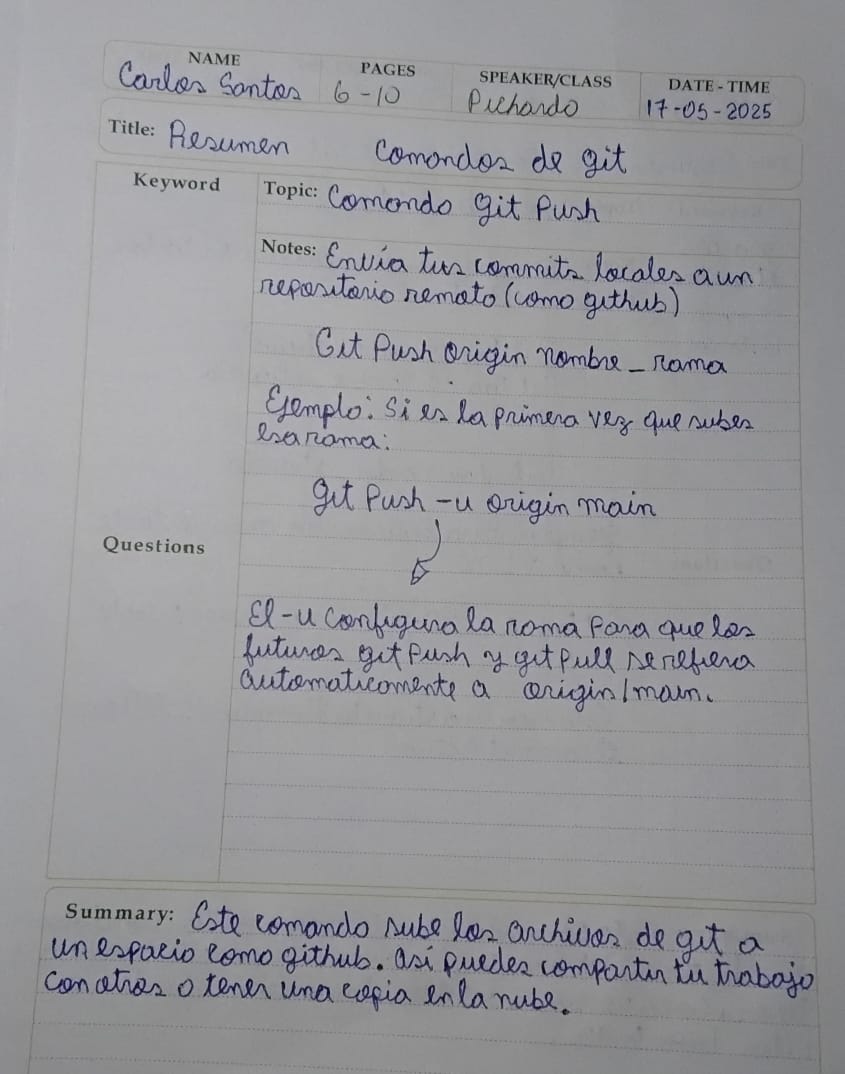 NAME PAGES SPEAKER/CLASS DATE - TIME
Carlos Santos 6-10 Pichardo 17-05-2025
Title: Resumen Comandos de git
Keyword Topic: Comando git Push
Notes: Envía tus commits locales a un
repositorio remoto (como github)
Git Push origin nombre_rama
Ejemplo: Si es la primera vez que subes
esa rama:
git Push -u origin main
Questions
El -u configura la rama Para que los
futuros git Push y git Pull se refiera
automaticamente a origin/main.
Summary: Este comando sube los archivos de git a
un espacio como github. así puedes compartir tu trabajo
con otros o tener una copia en la nube.